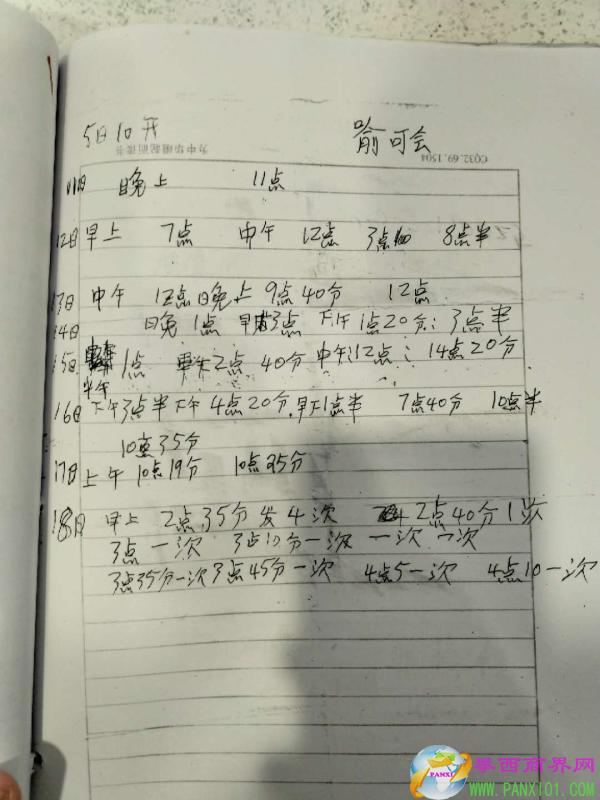 5日10开 喻可会
为中华崛起而读书 CQ32.69.1504
11日 晚上 11点
12日 早上 7点 中午 12点 3点 8点半
13日 中午 12点 晚上 9点40分 12点
14日 日晚 1点 3点 下午 1点20分: 3点半
15日 1点 2点 40分 中午: 12点: 14点20分
半午
16日 下午3点半 下午 4点20分. 早下1点半 7点40分 10点半
10点35分
17日 上午 10点19分 10点25分
18日 早上 2点35分发4次 2点40分1次
3点一次 3点10分一次 一次 一次
3点35分一次 3点45分一次 4点5一次 4点10一次
攀西商界网
PANXI
WWW.PANXI01.COM